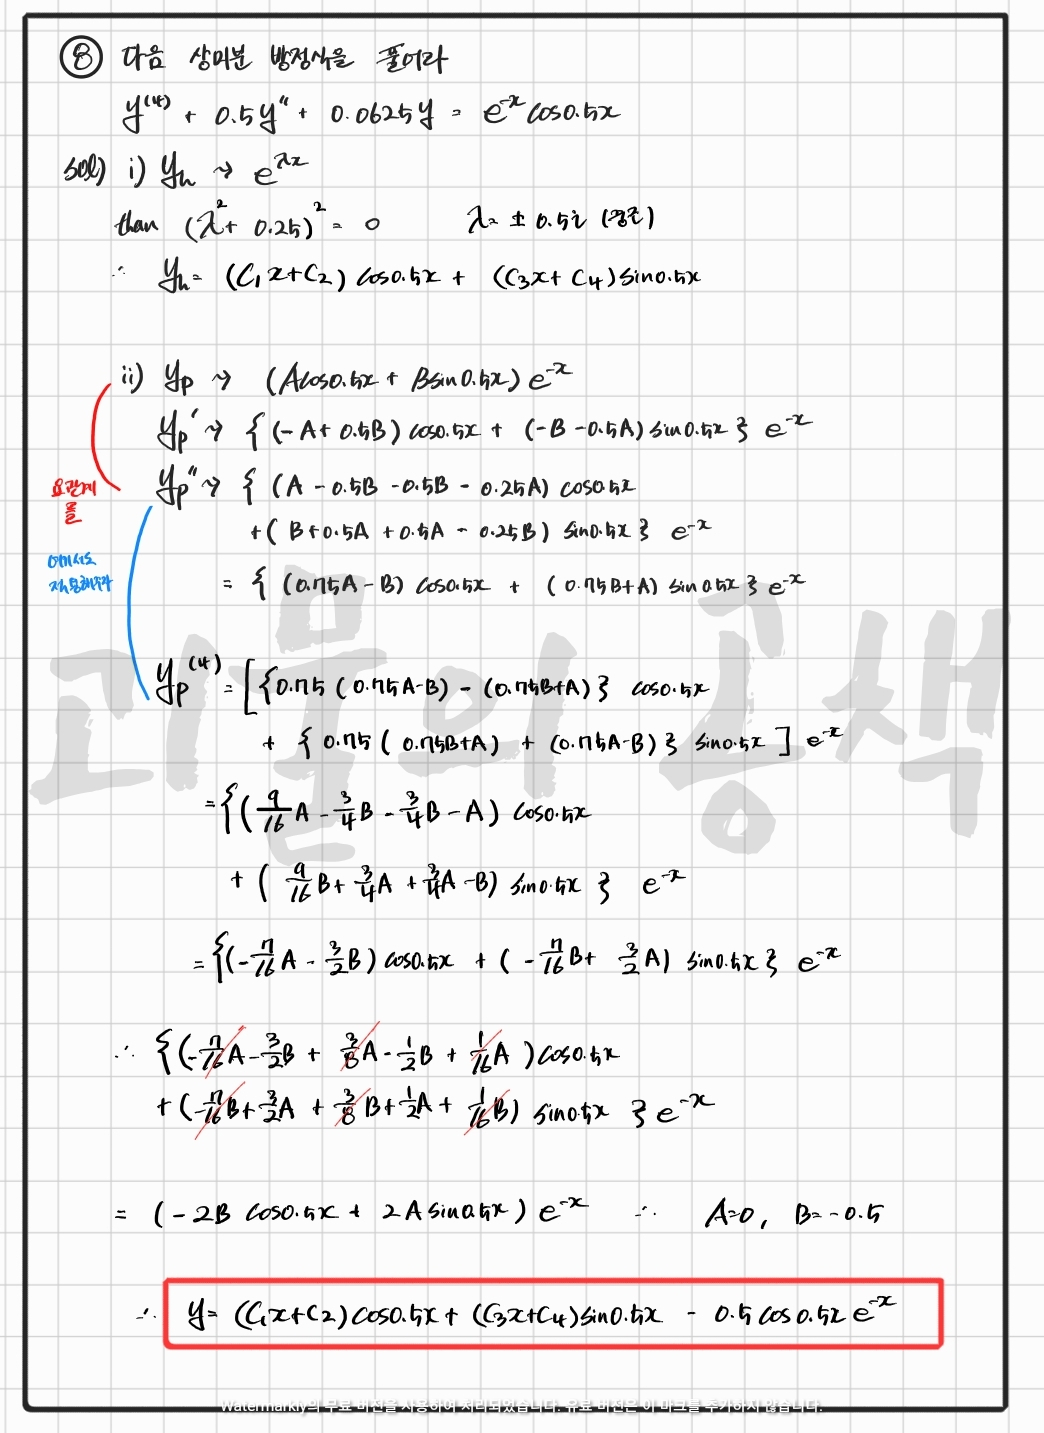 ⑧ 다음 상미분 방정식을 풀어라
y⁽⁴⁾ + 0.5y" + 0.0625y = e⁻ˣ cos0.5x
sol) i) yₕ → e^λx
than (λ² + 0.25)² = 0 λ = ± 0.5i (중근)
∴ yₕ = (C₁x+C₂) cos0.5x + (C₃x+C₄) sin0.5x
ii) yₚ → (Acos0.5x + Bsin0.5x) e⁻ˣ
yₚ' → { (-A+0.5B) cos0.5x + (-B-0.5A) sin0.5x } e⁻ˣ
yₚ" → { (A - 0.5B - 0.5B - 0.25A) cos0.5x
요관계
를
+ ( B+0.5A + 0.5A - 0.25B ) sin0.5x } e⁻ˣ
여기서도
적용해주자
= { (0.75A - B) cos0.5x + ( 0.75B+A) sin0.5x } e⁻ˣ
괴물의 공책
yₚ⁽⁴⁾ = [ {0.75 ( 0.75A-B) - (0.75B+A) } cos0.5x
+ { 0.75 ( 0.75B+A) + (0.75A-B) } sin0.5x ] e⁻ˣ
= { ( 9/16 A - 3/4 B - 3/4 B - A ) cos0.5x
+ ( 9/16 B + 3/4 A + 3/4 A - B) sin0.5x } e⁻ˣ
= { (-7/16 A - 3/2 B ) cos0.5x + ( -7/16 B + 3/2 A) sin0.5x } e⁻ˣ
∴ { (-7/16 A - 3/2 B + 3/8 A - 1/2 B + 1/16 A ) cos0.5x
+ (-7/16 B + 3/2 A + 3/8 B + 1/2 A + 1/16 B) sin0.5x } e⁻ˣ
= (-2B cos0.5x + 2A sin0.5x ) e⁻ˣ ∴ A=0, B=-0.5
∴ y = (C₁x+C₂) cos0.5x + (C₃x+C₄) sin0.5x - 0.5 cos 0.5x e⁻ˣ
Watermarkly의 무료 버전을 사용하여 처리되었습니다. 유료 버전은 이 마크를 추가하지 않습니다.